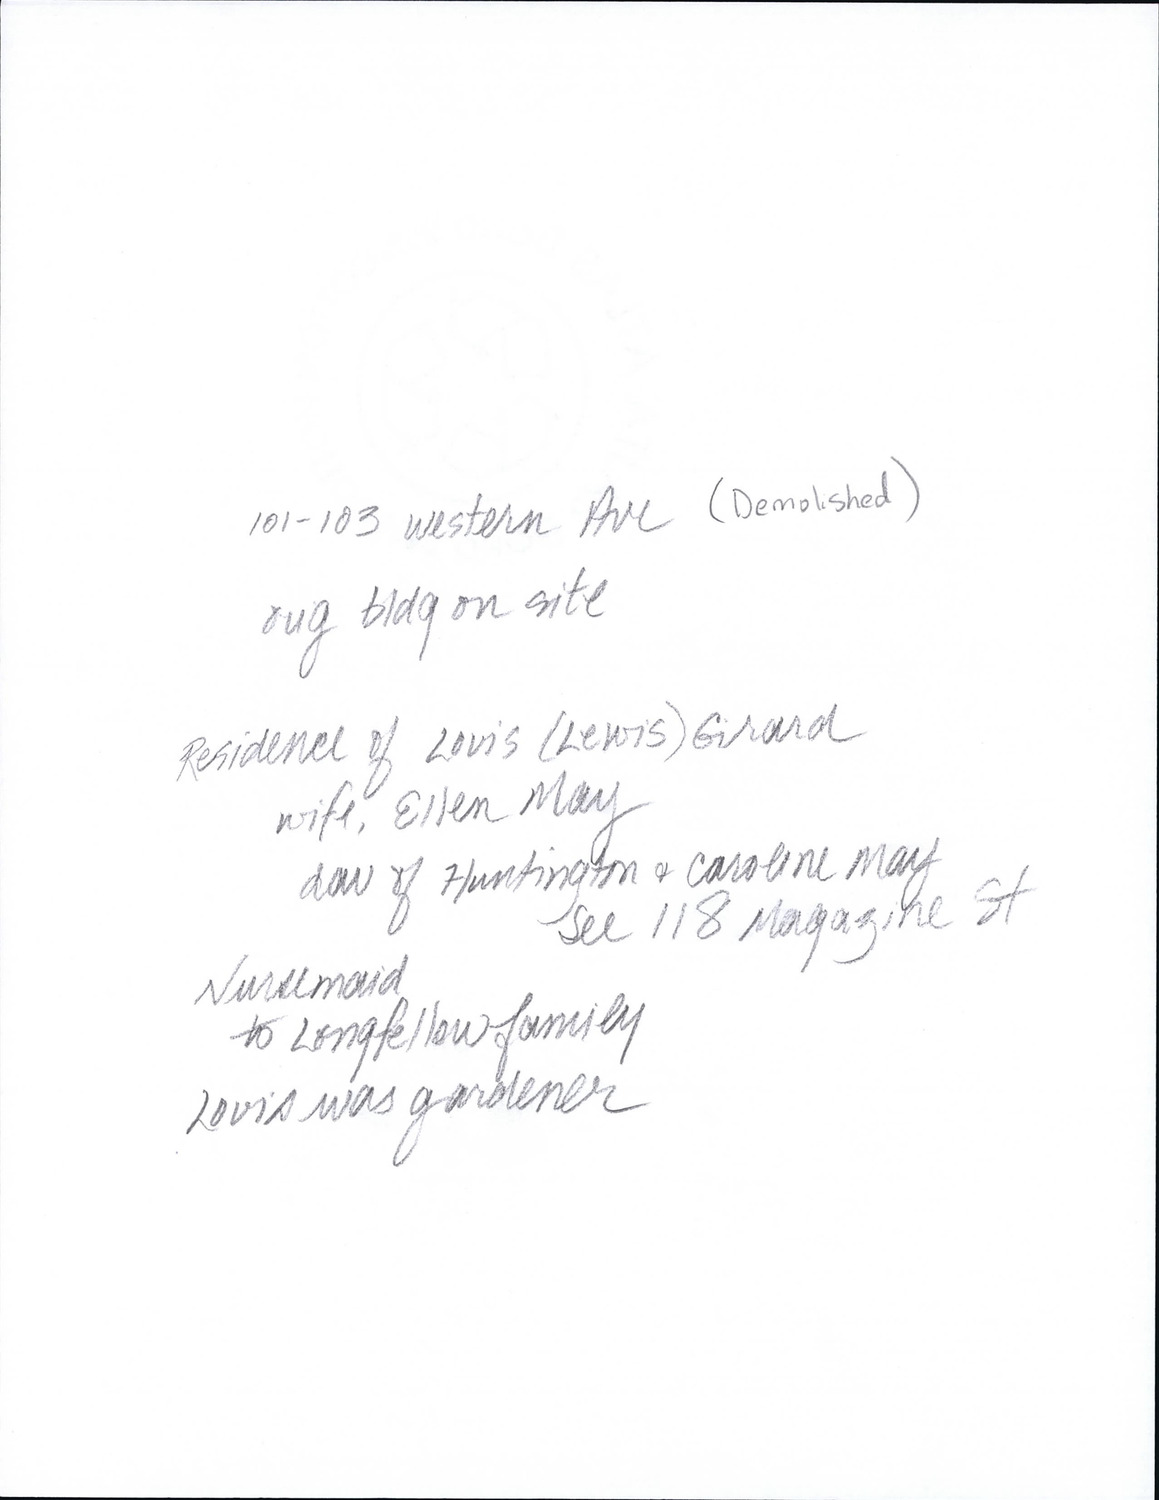 101-103 Western Ave (Demolished)
oug bldg on site
Residence of Louis (Lewis) Girard
wife, Ellen May
dau of Huntington & Caroline May
See 118 Magazine St
Nursemaid
to Longfellow family
Louis was gardener